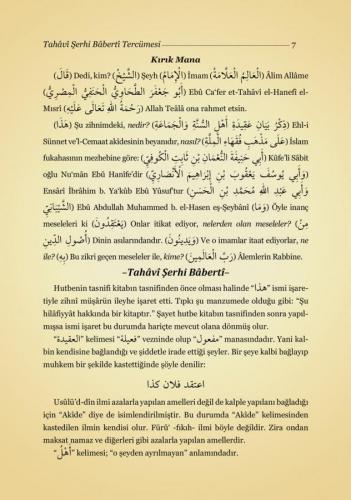 Tahâvî Şerhi Bâbertî Tercümesi 7
Kırık Mana
(قَالَ) Dedi, kim? (الشَّيْخُ) Şeyh (الْإِمَامُ) İmam (الْعَالِمُ الْعَلَّامَةُ) Âlim Allâme
(أَبُو جَعْفَرَ الطَّحَاوِيُّ الْحَنَفِيُّ الْمِصْرِيُّ) Ebû Ca'fer et-Tahâvî el-Hanefî el-
Mısrî (رَحْمَةُ اللّٰهِ تَعَالَى عَلَيْهِ) Allah Teâlâ ona rahmet etsin.
(هَذَا) Şu zihnimdeki, nedir? (ذِكْرُ بَيَانِ عَقِيدَةِ أَهْلِ السُّنَّةِ وَالْجَمَاعَةِ) Ehl-i
Sünnet ve'l-Cemaat akidesinin beyanıdır, nasıl? (عَلَى مَذْهَبِ فُقَهَاءِ الْمِلَّةِ) İslam
fukahasının mezhebine göre: (أَبِي حَنِيفَةَ النُّعْمَانِ بْنِ ثَابِتٍ الْكُوفِيِّ) Kûfe'li Sâbit
oğlu Nu'mân Ebû Hanîfe'dir (وَأَبِي يُوسُفَ يَعْقُوبَ بْنِ إِبْرَاهِيمَ الْأَنْصَارِيِّ)
Ensârî İbrâhim b. Ya'kûb Ebû Yûsuf'tur (وَأَبِي عَبْدِ اللّٰهِ مُحَمَّدِ بْنِ الْحَسَنِ
الشَّيْبَانِيِّ) Ebû Abdullah Muhammed b. el-Hasen eş-Şeybânî (وَمَا) Öyle inanç
meseleleri ki (يَعْتَقِدُونَ) Onlar itikat ediyor, nelerden olan meseleler? (مِنْ
أُصُولِ الدِّينِ) Dinin asıllarındandır. (وَيَدِينُونَ) Ve o imamlar itaat ediyorlar, ne
ile? (بِهِ) Bu zikri geçen meseleler ile, kime? (رَبِّ الْعَالَمِينَ) Âlemlerin Rabbine.
–Tahâvî Şerhi Bâbertî–
Hutbenin tasnifi kitabın tasnifinden önce olması halinde "هذا" ismi işare-
tiyle zihnî müşârün ileyhe işaret etti. Tıpkı şu manzumede olduğu gibi: "Şu
hilâfiyyât hakkında bir kitaptır." Şayet hutbe kitabın tasnifinden sonra yapıl-
mışsa ismi işaret bu durumda hariçte mevcut olana dönmüş olur.
"العقيدة" kelimesi "فعيلة" vezninde olup "مفعول" manasındadır. Yani kal-
bin kendisine bağlandığı ve şiddetle irade ettiği şeyler. Bir şeye kalbi bağlayıp
muhkem bir şekilde kastettiğinde şöyle denilir:
اعتقد فلان كذا
Usûlü'd-dîn ilmi azalarla yapılan amelleri değil de kalple yapılanı bağladığı
için "Akide" diye de isimlendirilmiştir. Bu durumda "Akide" kelimesinden
kastedilen ilmin kendisi olur. Fürû' -fıkıh- ilmi böyle değildir. Zira ondan
maksat namaz ve diğerleri gibi azalarla yapılan amellerdir.
"أَهْلُ" kelimesi; "o şeyden ayrılmayan" anlamındadır.